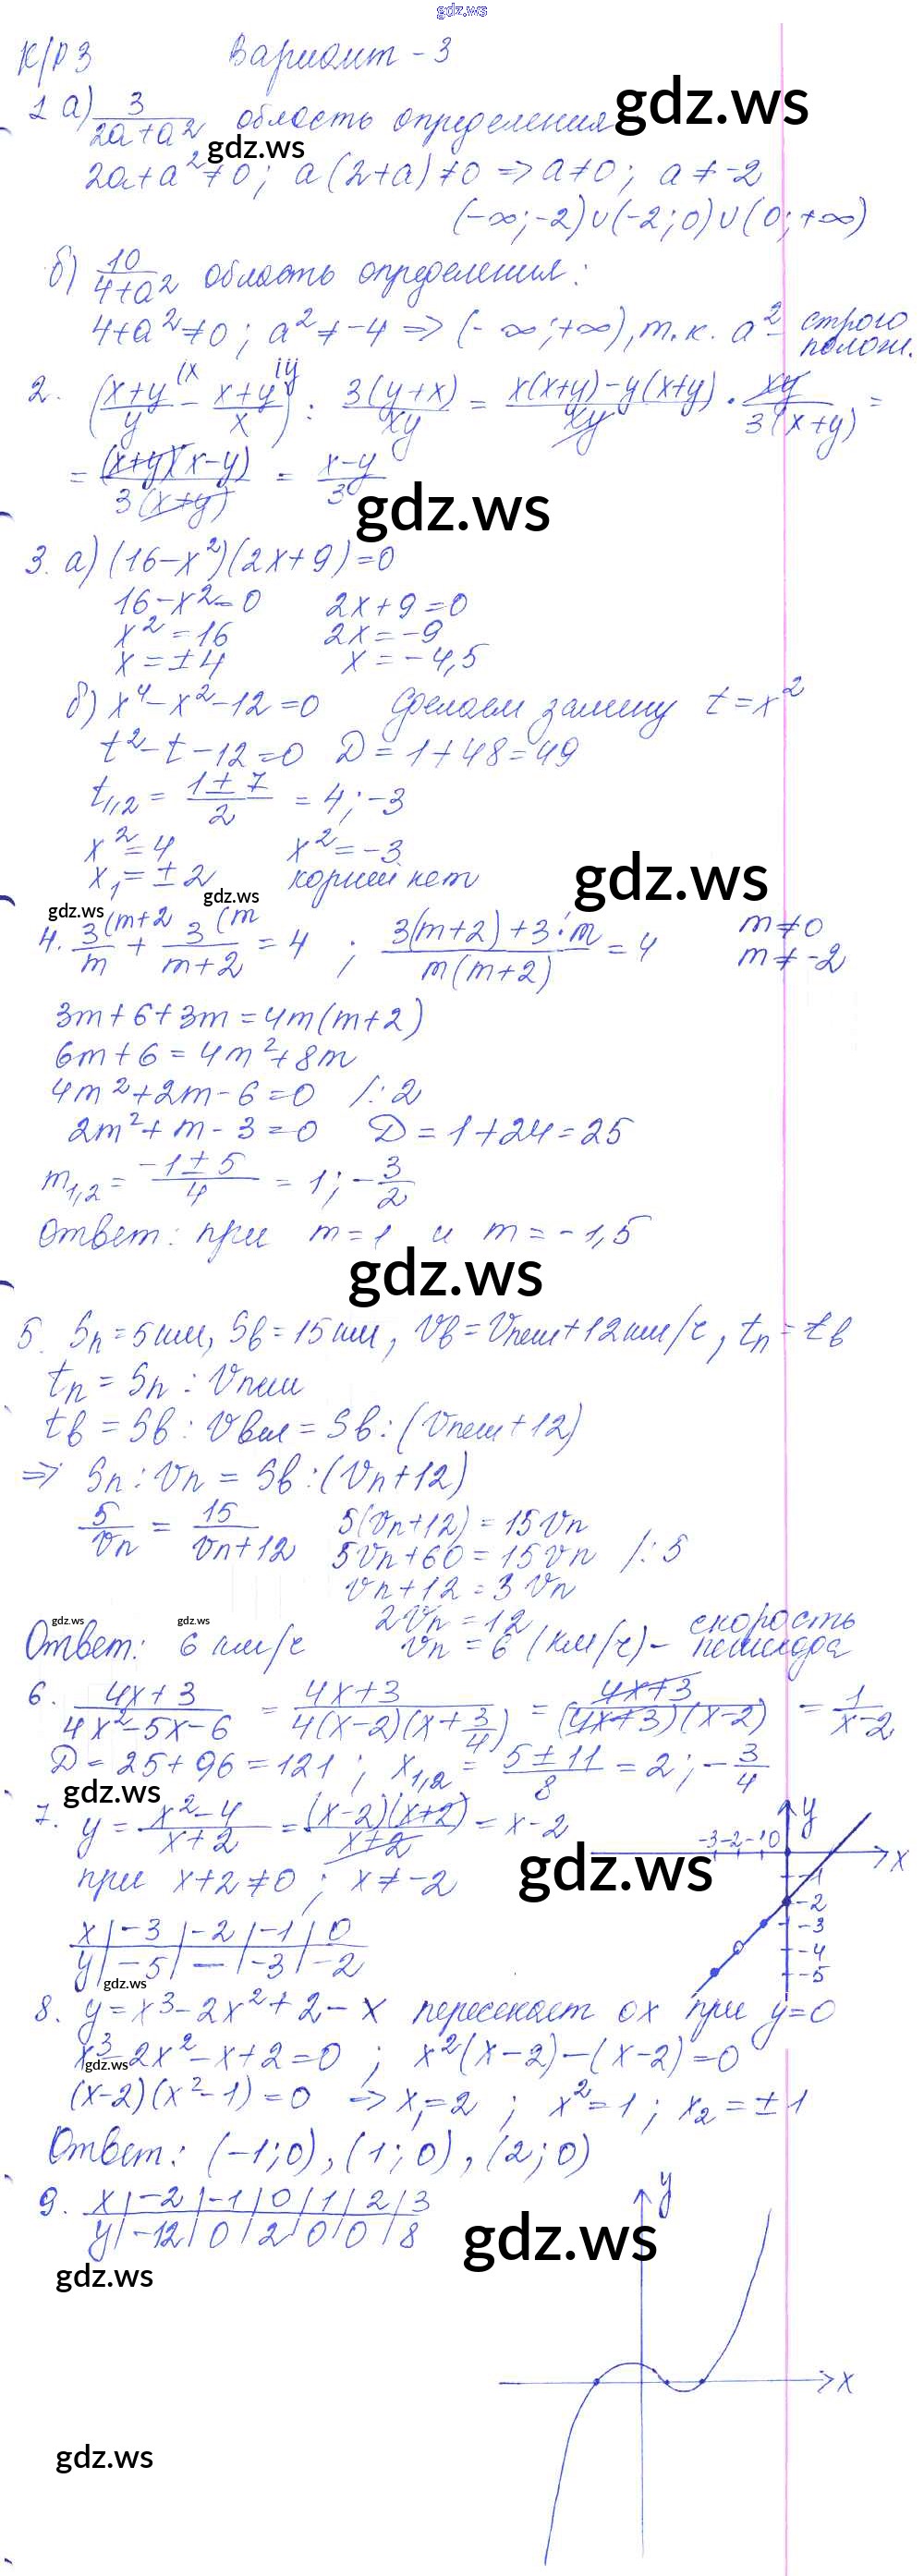 gdz.ws
К/Р 3 Вариант - 3
1 а) 3/(2a+a²) область определения gdz.ws
gdz.ws
2a+a²≠0; a(2+a)≠0 => a≠0; a≠-2
(-∞;-2)∪(-2;0)∪(0;+∞)
б) 10/(4+a²) область определения:
4+a²≠0; a²≠-4 => (-∞;+∞), т.к. a² - строго полож.
2. ((x+y)/y (x - (x+y)/x (y) : 3(y+x)/xy = (x(x+y)-y(x+y))/xy · xy/3(x+y) =
= (x+y)(x-y)/3(x+y) = (x-y)/3
gdz.ws
3. а) (16-x²)(2x+9)=0
16-x²=0 2x+9=0
x²=16 2x=-9
x=±4 x=-4,5
б) x⁴-x²-12=0 Сделаем замену t=x²
t²-t-12=0 D=1+48=49
t₁,₂ = (1±7)/2 = 4; -3
x²=4 x²=-3
x₁=±2 корней нет
gdz.ws
gdz.ws
gdz.ws
4. 3/m (m+2 + 3/(m+2) (m = 4 ; (3(m+2)+3·m)/(m(m+2)) = 4 m≠0
m≠-2
3m+6+3m=4m(m+2)
6m+6=4m²+8m
4m²+2m-6=0 /:2
2m²+m-3=0 D=1+24=25
m₁,₂ = (-1±5)/4 = 1; -3/2
Ответ: при m=1 и m=-1,5
gdz.ws
5. Sп=5км, Sв=15км, Vв=Vпеш+12км/ч, tп=tв
tп = Sп : Vпеш
tв = Sв : Vвел = Sв : (Vпеш+12)
=> Sп : Vп = Sв : (Vп+12)
5/Vп = 15/(Vп+12) 5(Vп+12)=15Vп
5Vп+60=15Vп /:5
Vп+12=3Vп
gdz.ws gdz.ws
2Vп=12
Ответ: 6 км/ч Vп=6 (км/ч) - скорость пешехода
6. (4x+3)/(4x²-5x-6) = (4x+3)/(4(x-2)(x+3/4)) = (4x+3)/((4x+3)(x-2)) = 1/(x-2)
D=25+96=121; x₁,₂ = (5±11)/8 = 2; -3/4
gdz.ws
7. y = (x²-4)/(x+2) = (x-2)(x+2)/(x+2) = x-2
gdz.ws
при x+2≠0; x≠-2
y
-3 -2 -1 0 x
-1
-2
-3
-4
-5
x | -3 | -2 | -1 | 0
y | -5 | — | -3 | -2
gdz.ws
8. y=x³-2x²+2-x пересекает ox при y=0
x³-2x²-x+2=0 ; x²(x-2)-(x-2)=0
gdz.ws
(x-2)(x²-1)=0 => x₁=2 ; x²=1; x₂=±1
Ответ: (-1;0), (1;0), (2;0)
9. x | -2 | -1 | 0 | 1 | 2 | 3
y | -12 | 0 | 2 | 0 | 0 | 8
y
gdz.ws
gdz.ws
x
gdz.ws